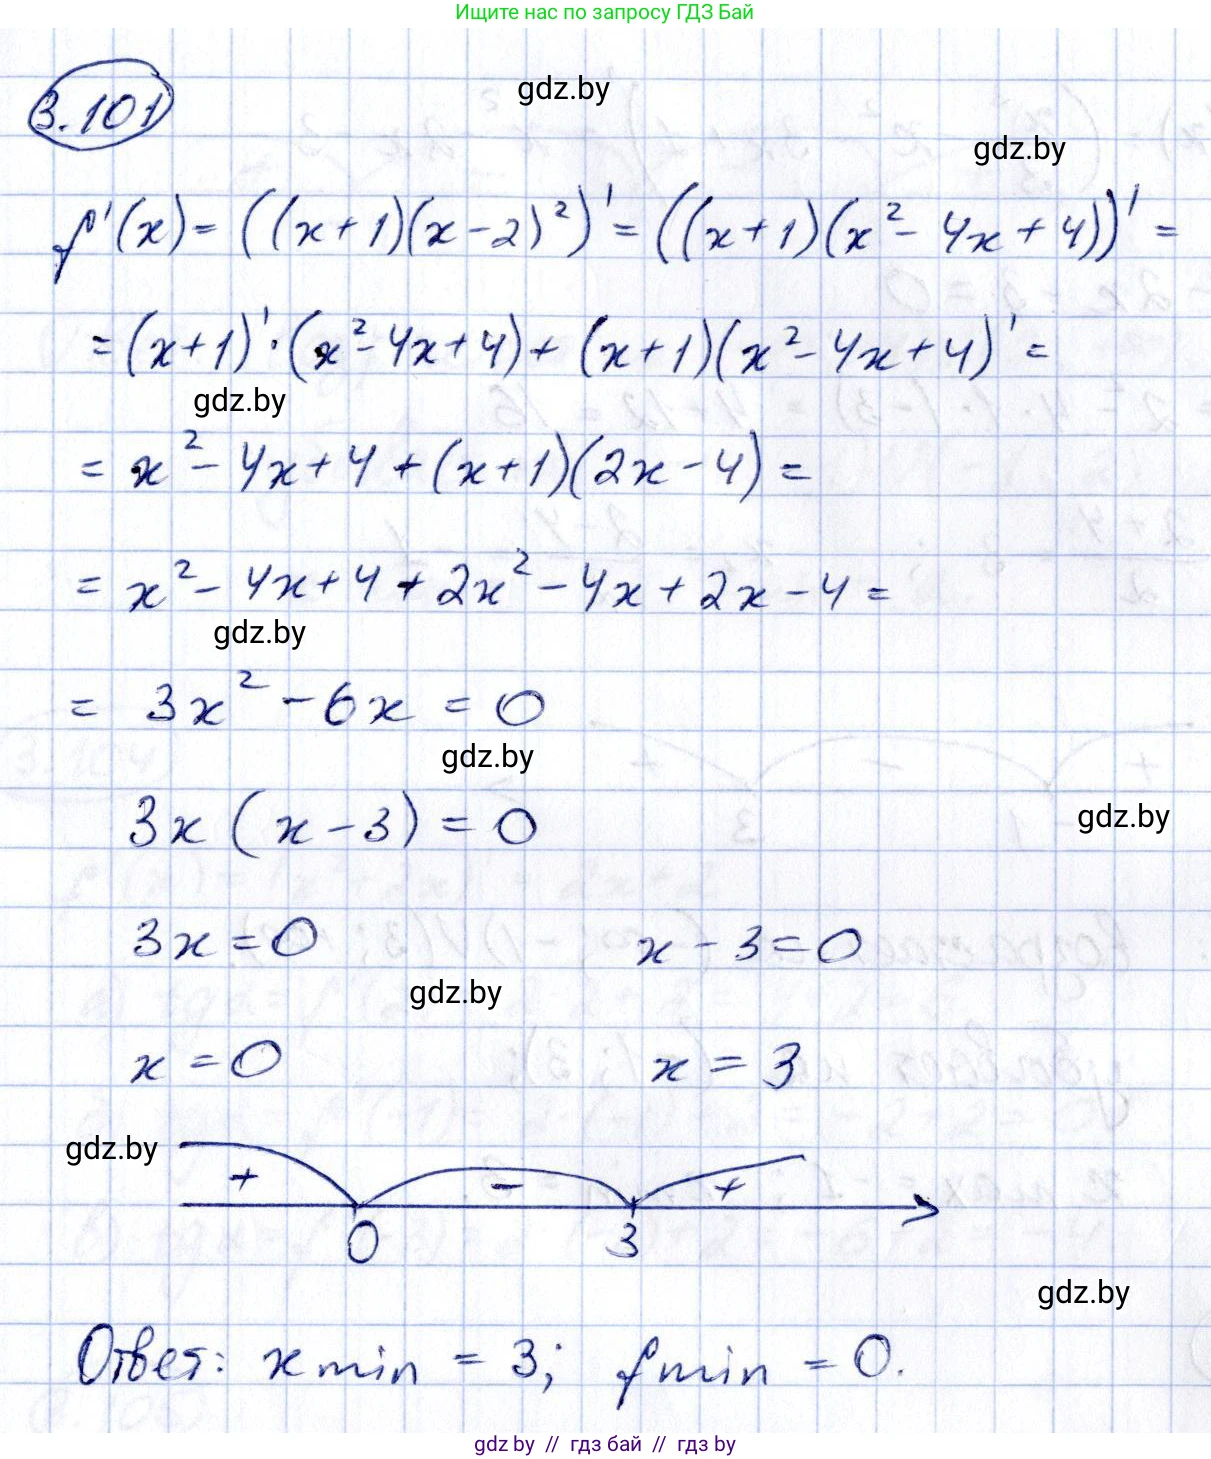 Ищите нас по запросу ГДЗ Бай
3.101
gdz.by
gdz.by
f'(x) = ((x+1)(x-2)²)' = ((x+1)(x²- 4x+4))' =
= (x+1)'·(x²-4x+4)+ (x+1)(x²-4x+4)' =
gdz.by
= x²- 4x+4 + (x+1)(2x-4) =
= x²- 4x+4 + 2x²-4x+2x-4 =
gdz.by
= 3x² - 6x = 0
gdz.by
3x (x-3) = 0
gdz.by
3x = 0 x - 3 = 0
gdz.by
x = 0 x = 3
gdz.by
+ - +
0 3
gdz.by
Ответ: x min = 3; f min = 0.
gdz.by // гдз бай // гдз by